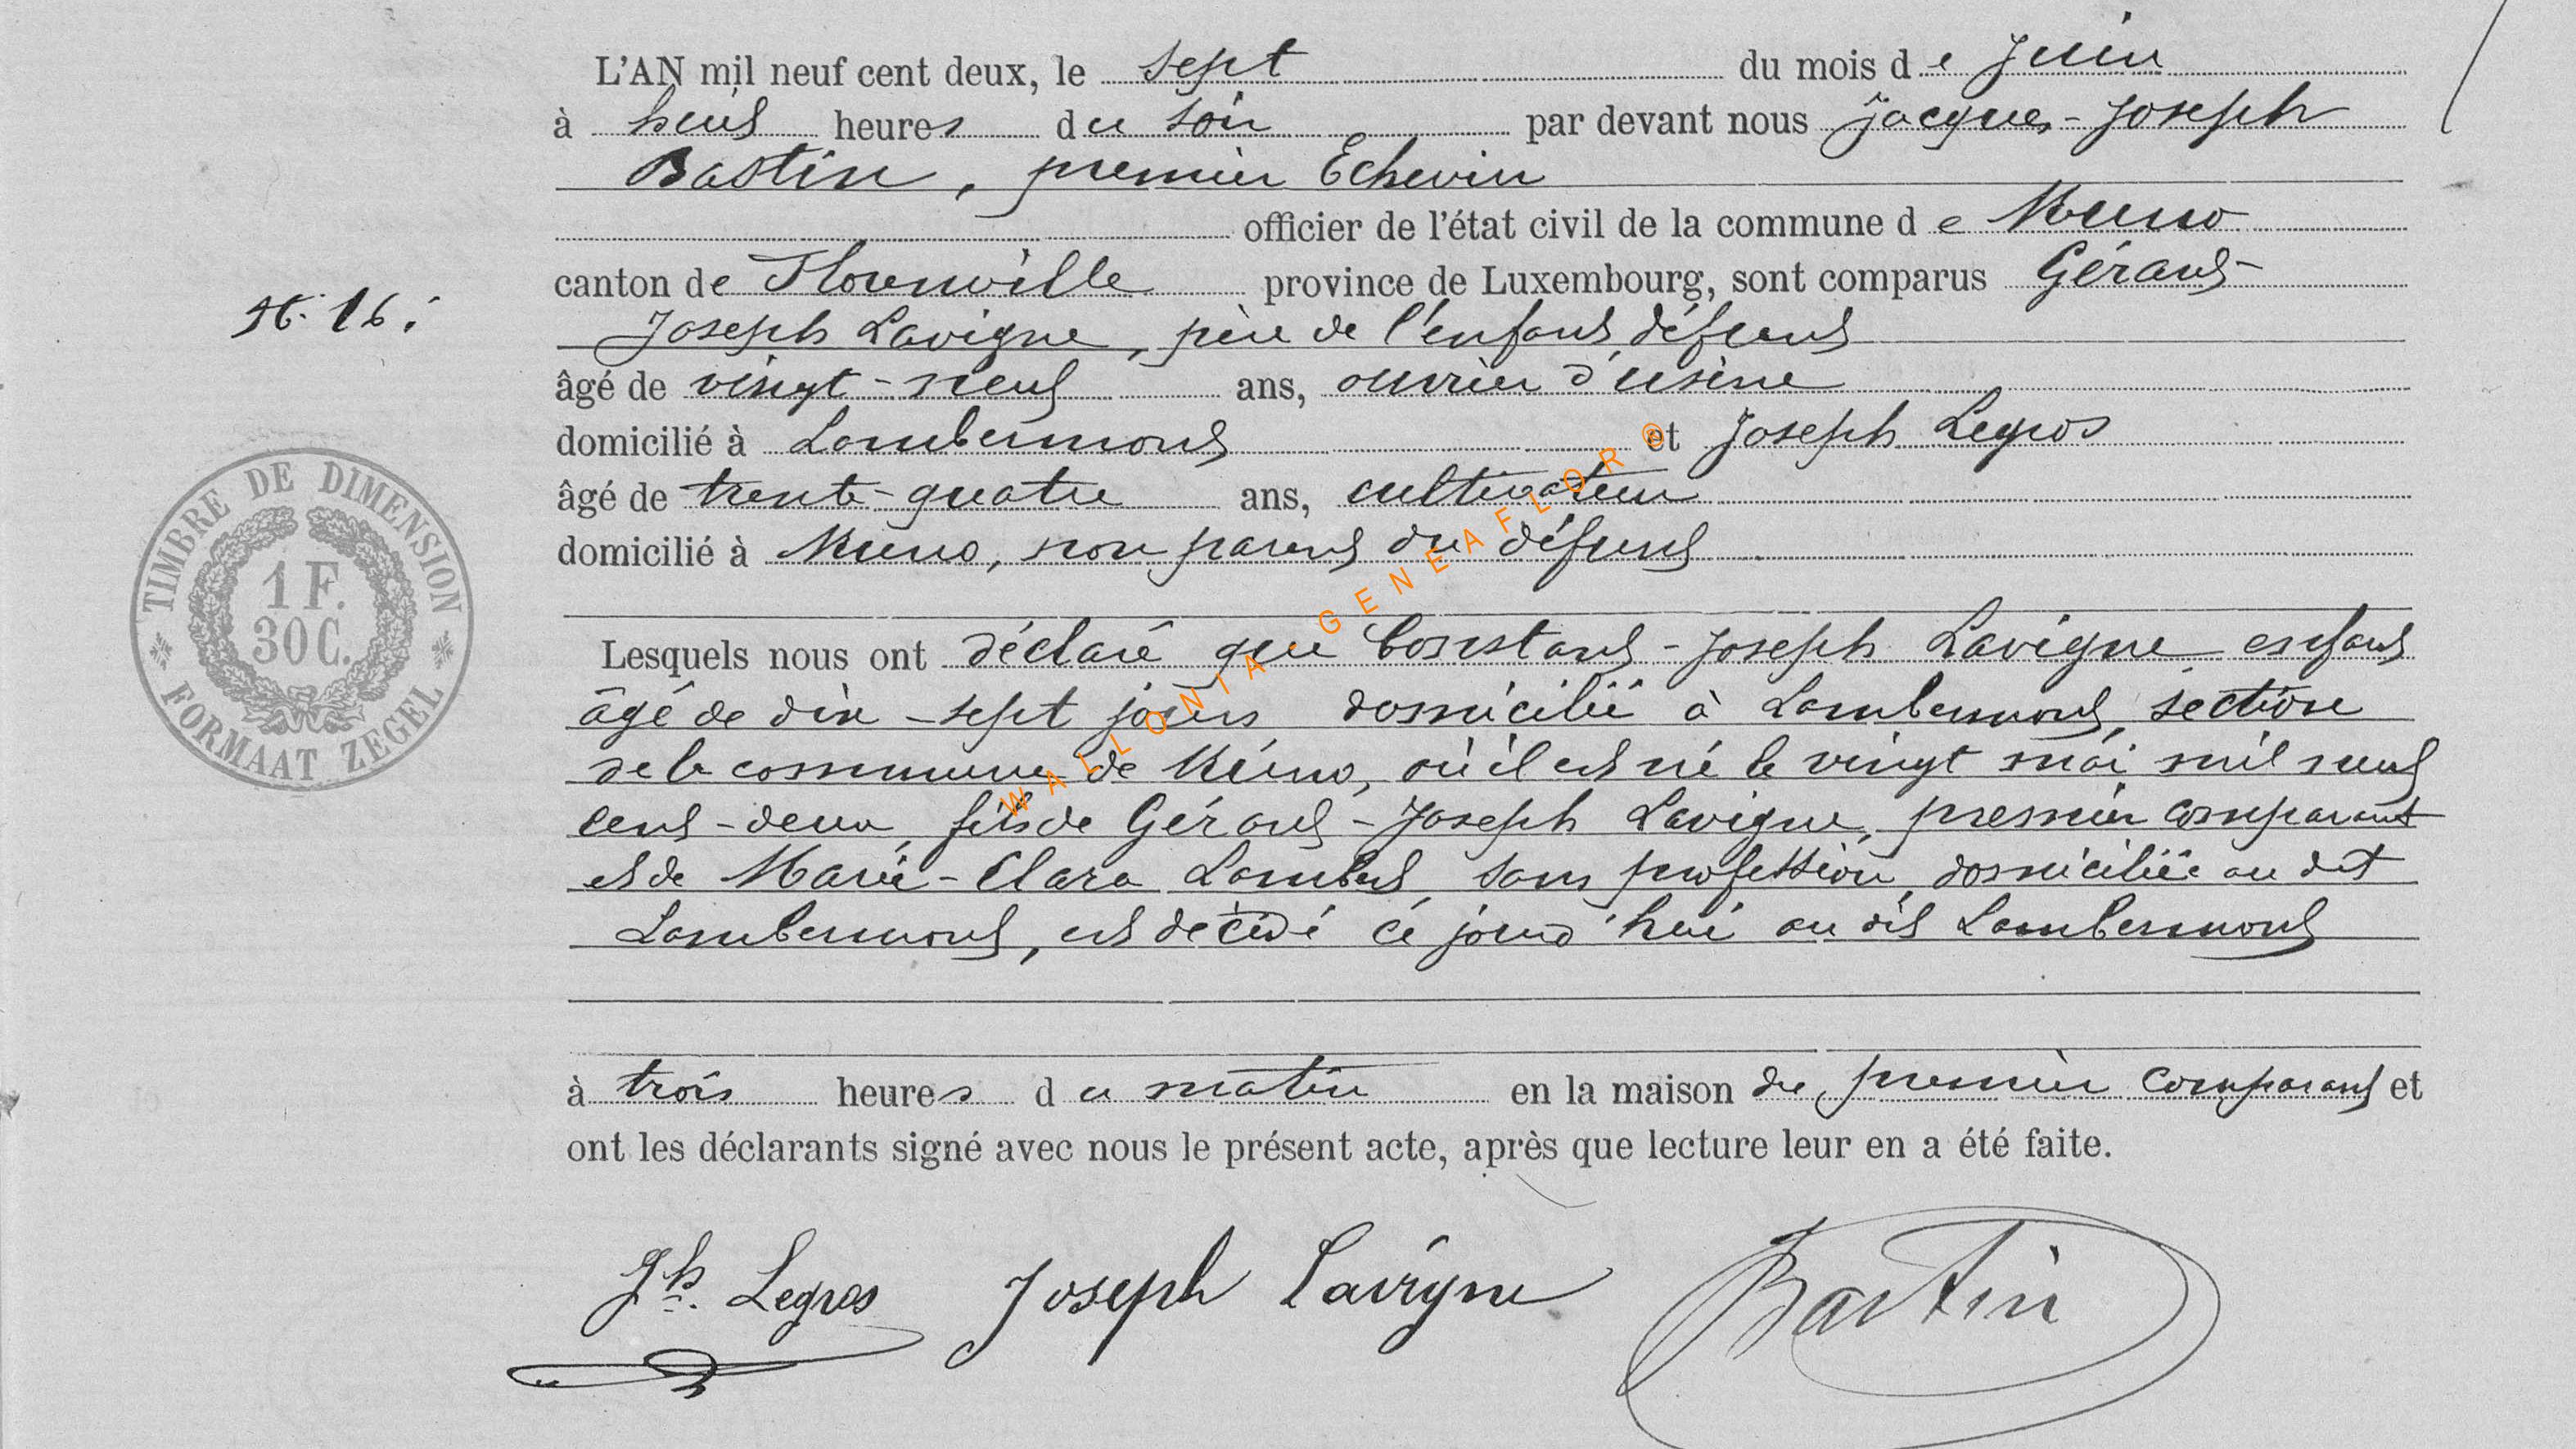 L'AN mil neuf cent deux, le sept du mois de Juin
à huit heures du soir par devant nous Jacques-Joseph
Bastin, premier Echevin
officier de l'état civil de la commune de Muno
canton de Florenville province de Luxembourg, sont comparus Gérard-
Joseph Lavigne, père de l'enfant défunt
âgé de vingt-neuf ans, ouvrier d'usine
domicilié à Lambermont et Joseph Legros
âgé de trente-quatre ans, cultivateur
domicilié à Muno, non parent du défunt
N. 16.
TIMBRE DE DIMENSION
1 F.
30 C.
FORMAAT ZEGEL
Lesquels nous ont déclaré que Constant-Joseph Lavigne enfant
âgé de dix-sept jours domicilié à Lambermont, section
de la commune de Muno, où il est né le vingt mai mil neuf
cent-deux, fils de Gérard-Joseph Lavigne, premier comparant
et de Marie-Clara Lambert sans profession, domiciliée au dit
Lambermont, est décédé ce jourd'hui au dit Lambermont
à trois heures du matin en la maison du premier comparant et
ont les déclarants signé avec nous le présent acte, après que lecture leur en a été faite.
Jh. Legros Joseph Lavigne Bastin
WALLONIA - GENEAFLOR ©